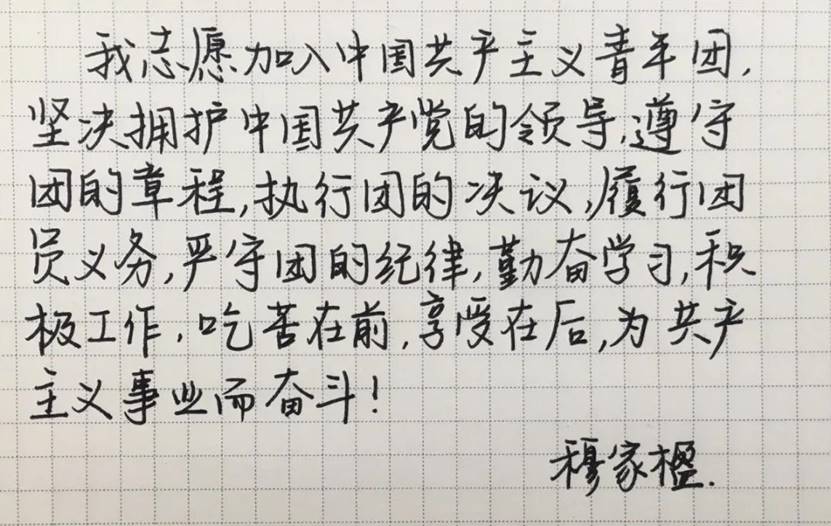 我志愿加入中国共产主义青年团,
坚决拥护中国共产党的领导,遵守
团的章程,执行团的决议,履行团
员义务,严守团的纪律,勤奋学习,积
极工作,吃苦在前,享受在后,为共产
主义事业而奋斗!
穆家楹.